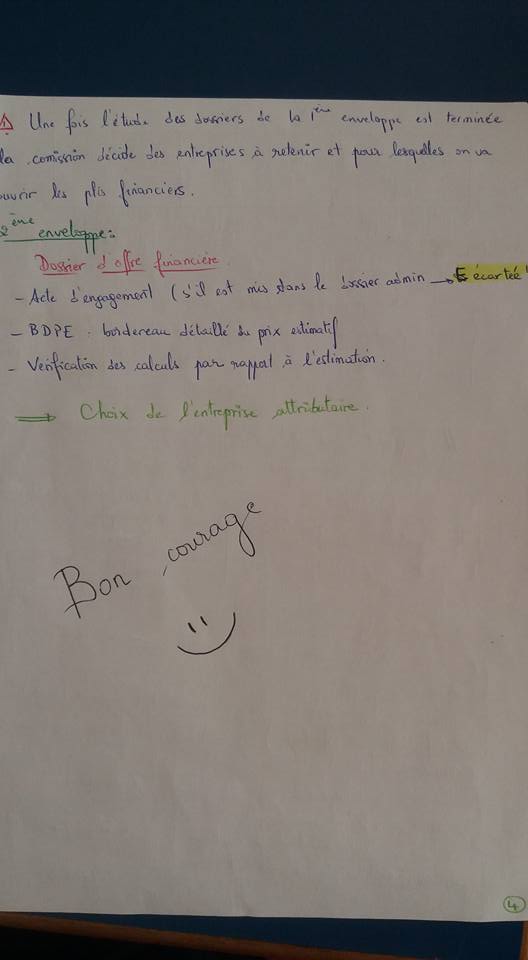 ⚠ Une fois l'étude des dossiers de la 1ère enveloppe est terminée
la comission décide des entreprises à retenir et pour lesquelles on va
ouvrir les plis financiers.
2ème enveloppe:
Dossier d'offre financière
- Acte d'engagement (s'il est mis dans le dossier admin → E écartée
- BDPE : bordereau détaillé du prix estimatif
- Vérification des calculs par rapport à l'estimation.
⟹ Choix de l'entreprise attributaire.
Bon courage
4